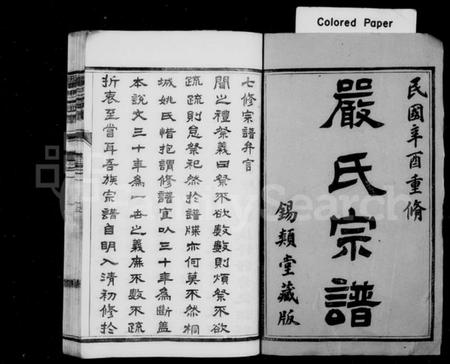 Colored Paper
民國辛酉重脩
嚴氏宗譜
錫類堂藏版
七修宗譜弁言
聞之禮祭義曰祭不欲數數則煩祭不欲
疏疏則怠祭祀然於譜牒亦何莫不然桐
城姚氏惜抱謂修譜宜以三十年為斷蓋
本說文三十年為一世之義庶不數不疏
折衷至當耳吾族宗譜自明入清初修於